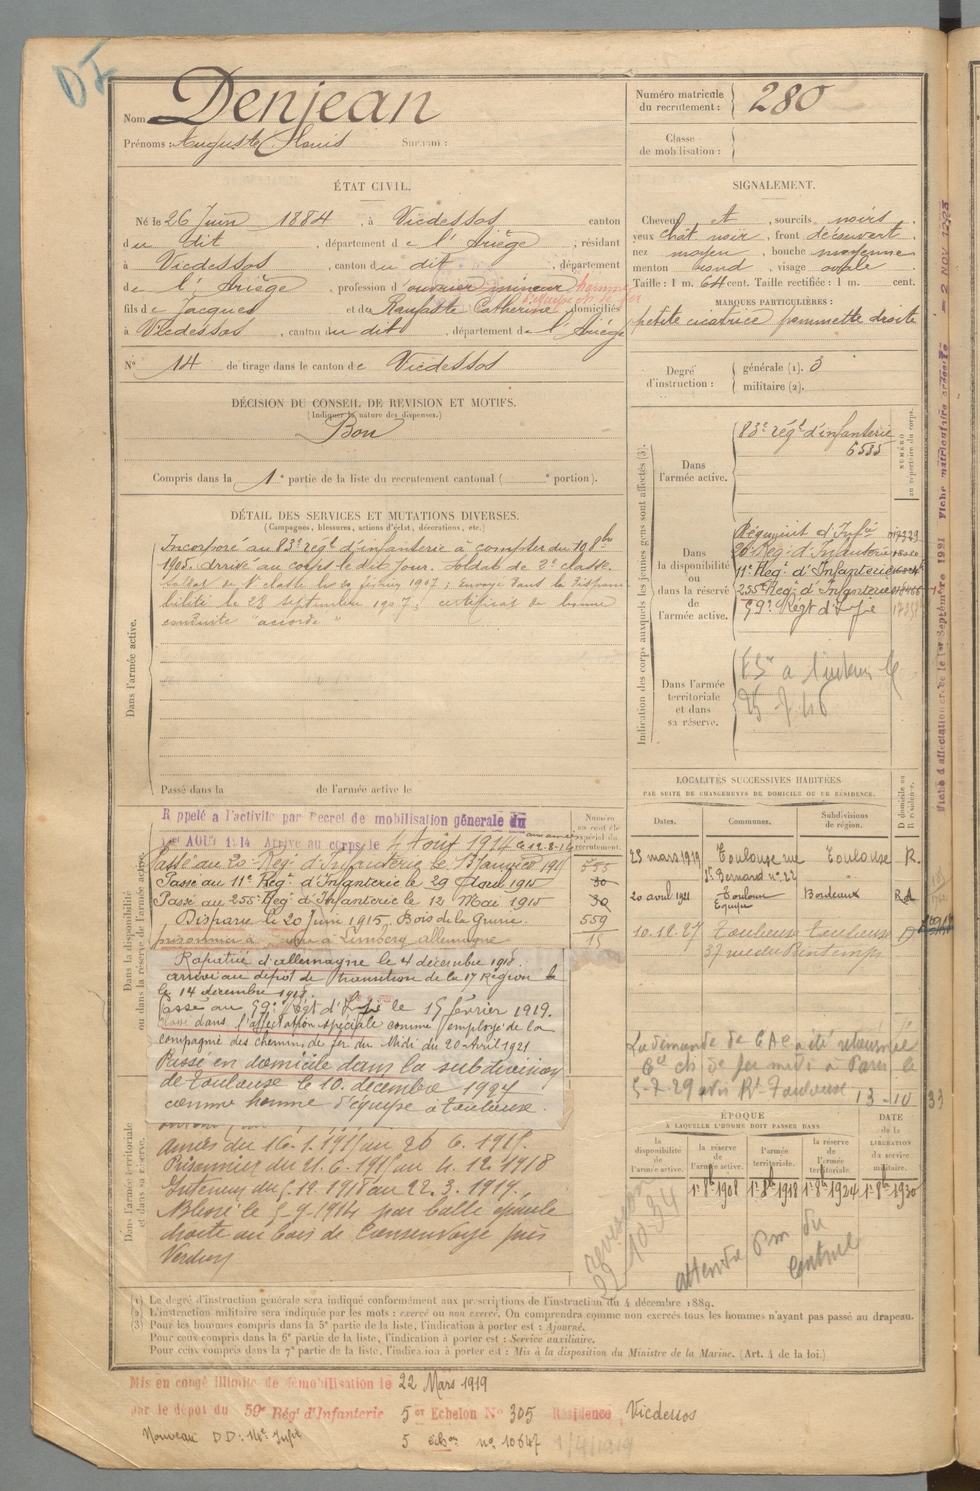 DI
Nom Denjean
Prénoms : Auguste Louis Surnom :
Numéro matricule du recrutement : 280
Classe de mobilisation :
ÉTAT CIVIL.
Né le 26 Juin 1884, à Vicdessos canton
du dit, département de l'Ariège, résidant
à Vicdessos, canton du dit, département
de l'Ariège, profession d'ouvrier mineur homme
d'équipe ch de fer
fils de Jacques et de Catherine domiciliés
à Vicdessos, canton du dit, département de l'Ariège
N° 14 de tirage dans le canton de Vicdessos
SIGNALEMENT.
Cheveux et, sourcils noirs
yeux chât noir, front découvert
nez moyen, bouche moyenne
menton rond, visage ovale
Taille : 1 m. 64 cent. Taille rectifiée : 1 m. cent.
MARQUES PARTICULIÈRES :
petite cicatrice pommette droite
Degré d'instruction : générale (1). 3
militaire (2).
DÉCISION DU CONSEIL DE REVISION ET MOTIFS.
(Indiquer la nature des dispenses.)
Bon
Compris dans la 1e partie de la liste du recrutement cantonal ( e portion).
DÉTAIL DES SERVICES ET MUTATIONS DIVERSES.
(Campagnes, blessures, actions d'éclat, décorations, etc.)
Dans l'armée active.
Incorporé au 83e régt d'infanterie à compter du 8bre
1905. Arrivé au corps le dit jour. Soldat de 2e classe.
Soldat de 1e classe le 20 février 1907; envoyé dans la disponi
bilité le 28 septembre 1907; certificat de bonne
conduite "accordé"
Passé dans la de l'armée active le
Indication des corps auxquels les jeunes gens sont affectés (3).
NUMÉRO au répertoire du corps.
Dans l'armée active.
83e régt d'infanterie
6535
Dans la disponibilité ou dans la réserve de l'armée active.
Régiment d'Infie
20e Reg. d'Infanterie
11e Regt d'Infanterie
255e Regt d'Infanterie
59e Régt d'Infie
Dans l'armée territoriale et dans sa réserve.
Fiche d'affectation créée le 1er Septembre 1921
Fiche matriculaire adressée le - 2 NOV 1925
Dans la disponibilité ou dans la réserve de l'armée active.
Rappelé à l'activité par Décret de mobilisation générale du
1er AOUT 1914 Arrivé au corps le 4 Août 1914
Passé au 20e Regt d'Infanterie le
Passé au 11e Regt d'Infanterie le 29 Avril 1915
Passé au 255e Regt d'Infanterie le 12 Mai 1915
Disparu le 20 Juin 1915, Bois de la Grurie.
prisonnier à Limberg allemagne
Rapatrié d'allemagne le 4 décembre 1918.
arrivé au dépôt de transition de la 17 Région le
le 14 décembre 1918.
Passé au 59e Régt d'Infie le 15 février 1919.
Classé dans l'affectation spéciale comme employé de la
compagnie des chemins de fer du Midi du 20 Avril 1921
Passé en domicile dans la subdivision
de Toulouse le 10 décembre 1927
comme homme d'équipe à Toulouse.
Numéro au contrôle spécial du recrutement.
555
30
30
559
15
LOCALITÉS SUCCESSIVES HABITÉES
PAR SUITE DE CHANGEMENTS DE DOMICILE OU DE RÉSIDENCE.
Dates. Communes. Subdivisions de région. D domicile ou R résidence.
23 mars 1919 Toulouse rue St Bernard n° 22 Toulouse R.
20 avril 1921 Toulouse Equipe Bordeaux
10.12.27 Toulouse Toulouse D
37 rue du Printemps
La demande de CAC a été retournée
Cie ch de fer midi à Paris le
5-7-29 avis Rt Toulouse 13-10
33
Dans l'armée territoriale et dans sa réserve.
armées du 16.1.1915 au 20 6.1915.
Prisonnier du 21.6.1915 au 4.12.1918
Intérieur du 5.12.1918 au 22.3.1919.
Blessé le 5-9-1914 par balle épaule
droite au bois de Consenvoye près
Verdun
ÉPOQUE
À LAQUELLE L'HOMME DOIT PASSER DANS
la disponibilité de l'armée active. la réserve de l'armée active. l'armée territoriale. la réserve de l'armée territoriale. DATE de la LIBÉRATION du service militaire.
1r 8b 1908 1r 8b 1918 1r 8b 1924 1r 8b 1930
(1) Le degré d'instruction générale sera indiqué conformément aux prescriptions de l'instruction du 4 décembre 1889.
(2) L'instruction militaire sera indiquée par les mots : exercé ou non exercé. On comprendra comme non exercés tous les hommes n'ayant pas passé au drapeau.
(3) Pour les hommes compris dans la 5e partie de la liste, l'indication à porter est : Ajourné.
Pour ceux compris dans la 6e partie de la liste, l'indication à porter est : Service auxiliaire.
Pour ceux compris dans la 7e partie de la liste, l'indication à porter est : Mis à la disposition du Ministre de la Marine. (Art. 4 de la loi.)
Mis en congé illimité de démobilisation le 22 Mars 1919
par le dépôt du 59e Régt d'Infanterie 5e Echelon N° 305 Résidence Vicdessos
Nouveau D D : 14e Infie 5 echon n° 10647 1/4/1919